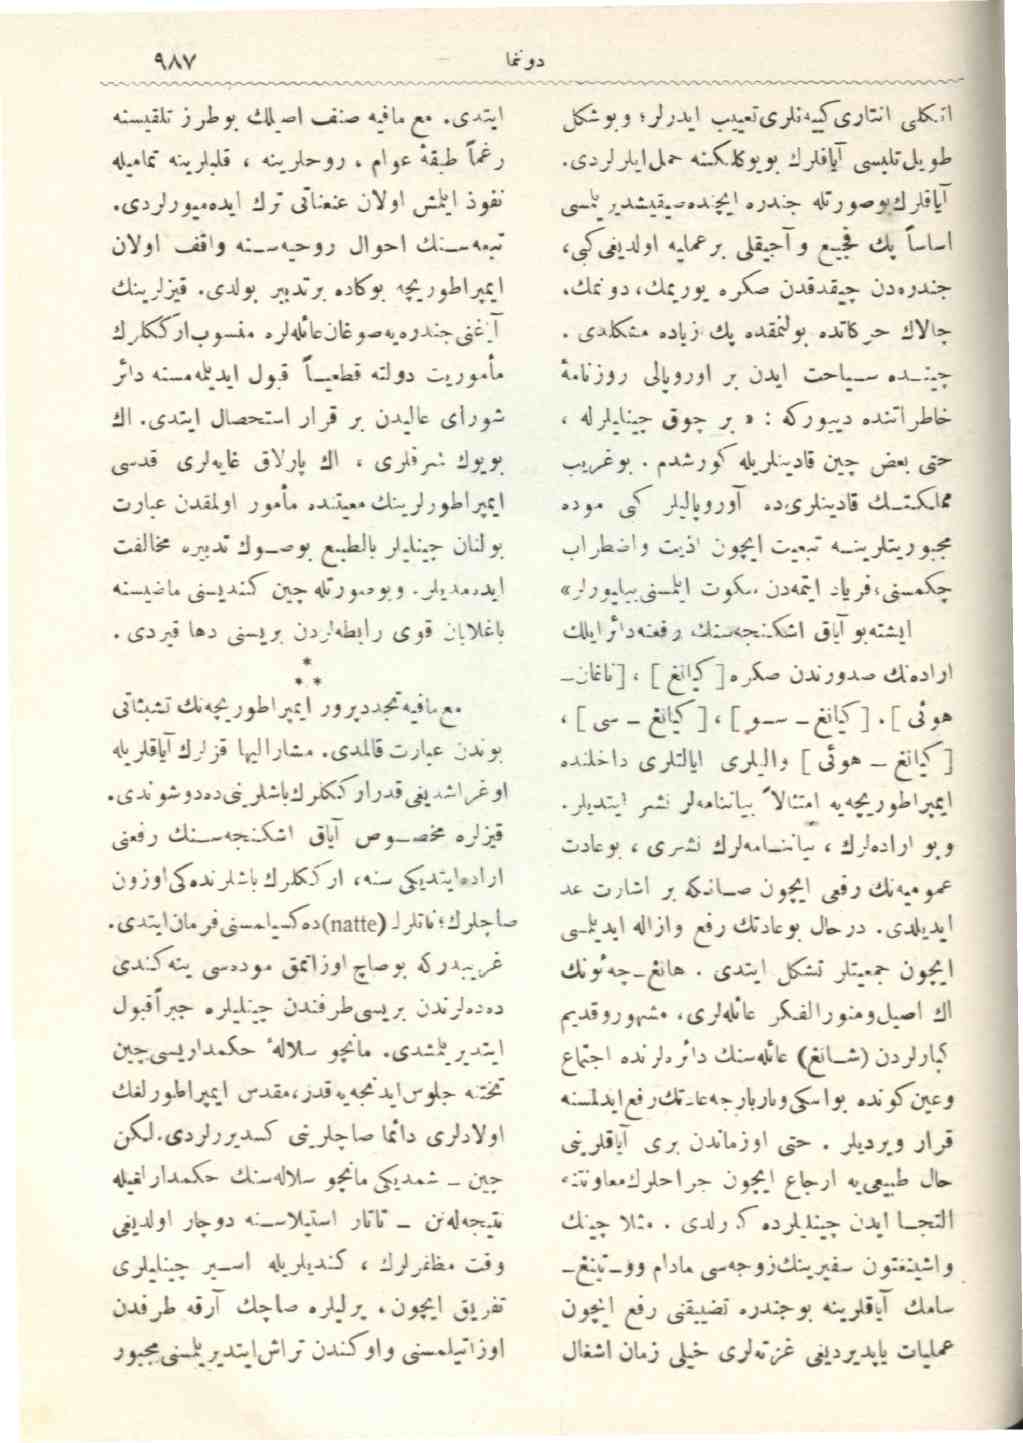 دوننما
٩٨٧
اتكلی انتاری كیینلری تعییب ایدرلر؛ و بو شكل
طویل تلبسی آیاقلرك بویوكلكنه حمل ایلرلردی.
آیاقلرك بو صورتله جندره ایچنده صیقیشدیریلمسی
اساساً پك فجیع و آجیقلی بر عملیه اولدیغی كبی،
جندره‌دن چیقدقدن صكره یوریمك، دونمك،
چالاك حركاتده بولنمقده پك زیاده مشكلدی .
چینده سیاحت ایدن بر اوروپالی روزنامهٔ
خاطراتنده دییوركه : « بر چوق چینلیلرله ،
حتی بعض چین قادینلریله كورشدم . بو غریب
مملكتك قادینلری ده آوروپالیلر كبی موده
مجبوریتلرینه تبعیت ایچون اذیت و اضطراب
چكمسنی، فریاد ایتمه‌دن سكوت ایلمسنی بیلیورلر»
ایشته بو آیاق اشكنجه‌سنك رفعنه دائر ایلك
اراده‌نك صدورندن صكره [ كیانغ ] ، [ نانغان-
هوئی ] . [ كیانغ - سو ] ، [ كیانغ - سی ] ،
[ كیانغ - هوئی ] والیلری ایالتلری داخلنده
ایمپراطوریچه‌یه امتثالاً بیاننامه‌لر نشر ایتدیلر.
و بو اراده‌لرك ، بیاننامه‌لرك نشری ، بو عادت
عمومیه‌نك رفعی ایچون صانكه بر اشارت عد
ایدیلدی. درحال بو عادتك رفع و ازاله ایدیلمسی
ایچون جمعیتلر تشكل ایتدی . هانغ-چه‌ئونك
اك اصیل و منور الفكر عائله‌لری، مشهور و قدیم
كبارلردن (شانغ) عائله‌سنك دائره‌لرنده اجتماع
و عین كونده بو اسكی و باربارجه عادتك رفع ایدلمسنه
قرار ویردیلر . حتی او زماندن بری آیاقلرینی
حال طبیعی‌یه ارجاع ایچون جراحلرك معاونتنه
التجا ایدن چینلیلرده كورلدی . مثلا چینك
واشینغتون سفیرینك زوجه‌سی مادام وو-تینغ-
سامك آیاقلرینه بو جندره تضییقنی رفع ایچون
عملیات یاپدیردیغی غزته‌لری خیلی زمان اشغال
ایتدی. مع مافیه صنف اصیللك بو طرز تلقیسنه
رغماً طبقهٔ عوام ، روحلرینه ، قلبلرینه تمامیله
نفوذ ایلمش اولان عنعناتی ترك ایده‌میورلردی.
تبعه‌سنك احوال روحیه‌سنه واقف اولان
ایمپراطوریچه بوكاده بر تدبیر بولدی. قیزلرینك
آیاغنی جندره‌یه صوغان عائله‌لره منسوب ارككلرك
مأموریت دولته قطعیاً قبول ایدیلمه‌مسنه دائر
شورای عالیدن بر قرار استحصال ایتدی. اك
بویوك شرفلری ، اك پارلاق غایه‌لری قدسی
ایمپراطورلرینك معیتنده مأمور اولمقدن عبارت
بولنان چینلیلر بالطبع بو صوك تدبیره مخالفت
ایده‌مدیلر. و بو صورتله چین كندیسنی ماضیسنه
باغلایان قوی رابطه‌لردن بریسنی دها قیردی .
*
* *
مع مافیه تجددپرور ایمپراطوریچه‌نك تشبثاتی
بوندن عبارت قالمدی. مشارالیها قزلرك آیاقلریله
اوغراشدیغی قدر ارككلرك باشلرینی ده دوشوندی.
قیزلره مخصوص آیاق اشكنجه‌سنك رفعنی
اراده ایتدیكی سنه، ارككلرك باشلرنده‌كی اوزون
صاچلرك؛ ناتلر (natte) ده كسیلمسنی فرمان ایتدی.
غریبدركه بو صاچ اوزاتمق موده‌سی ینه كندی
دده‌لرندن بریسی طرفندن چینلیلره جبراً قبول
ایتدیریلمشدی. مانچو سلالهٔ حكمداریسی چین
تختنه جلوس ایدنجه‌یه قدر، مقدس ایمپراطورلغك
اولادلری دائما صاچلرینی كسدیررلردی. لكن
چین - شمدیكی مانچو سلاله‌سنك حكمدارلغیله
نتیجه‌لنن - تاتار استیلاسنه دوچار اولدیغی
وقت مظفرلرك ، كندیلریله اسیر چینلیلری
تفریق ایچون، یرلیلره صاچك آرقه طرفدن
اوزاتیلمسنی و اوكندن تراش ایتدیریلمسنی مجبور